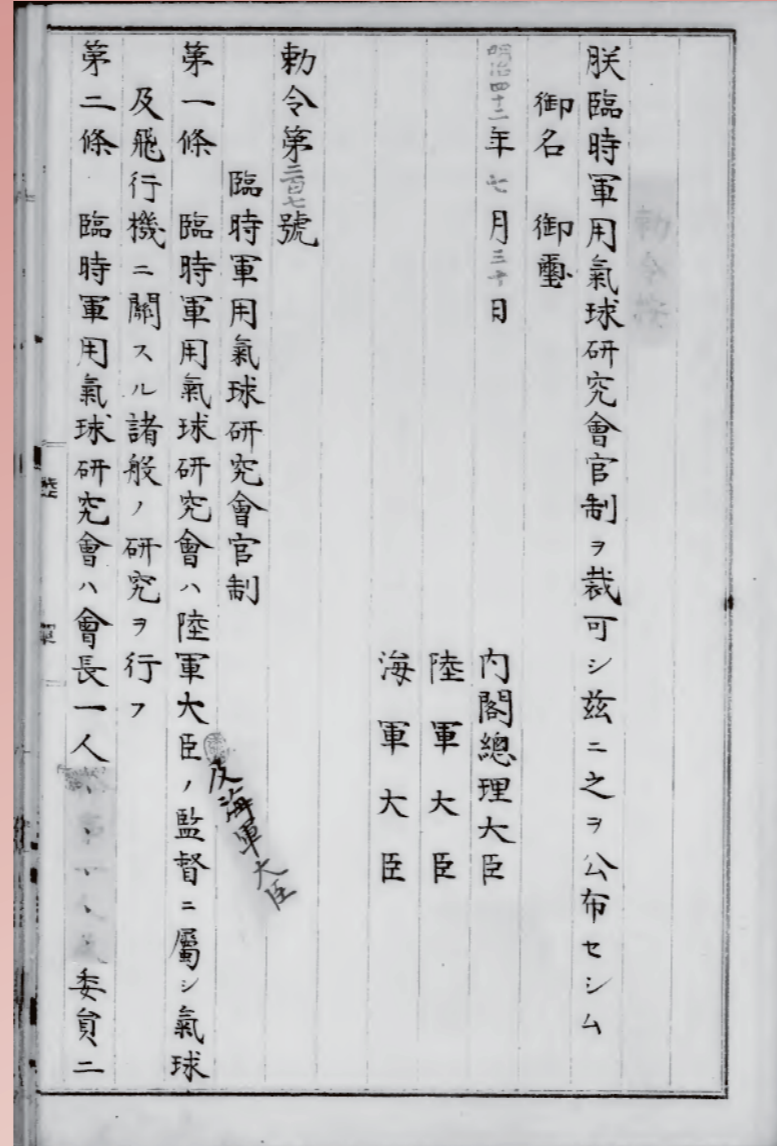 朕臨時軍用氣球研究會官制ヲ裁可シ茲ニ之ヲ公布セシム
御名 御璽
明治四十二年七月三十日
内閣總理大臣
陸軍大臣
海軍大臣
勅令第二百七號
臨時軍用氣球研究會官制
第一條 臨時軍用氣球研究會ハ陸軍大臣及海軍大臣ノ監督ニ屬シ氣球
及飛行機ニ關スル諸般ノ研究ヲ行フ
第二條 臨時軍用氣球研究會ハ會長一人、委員二
陸軍